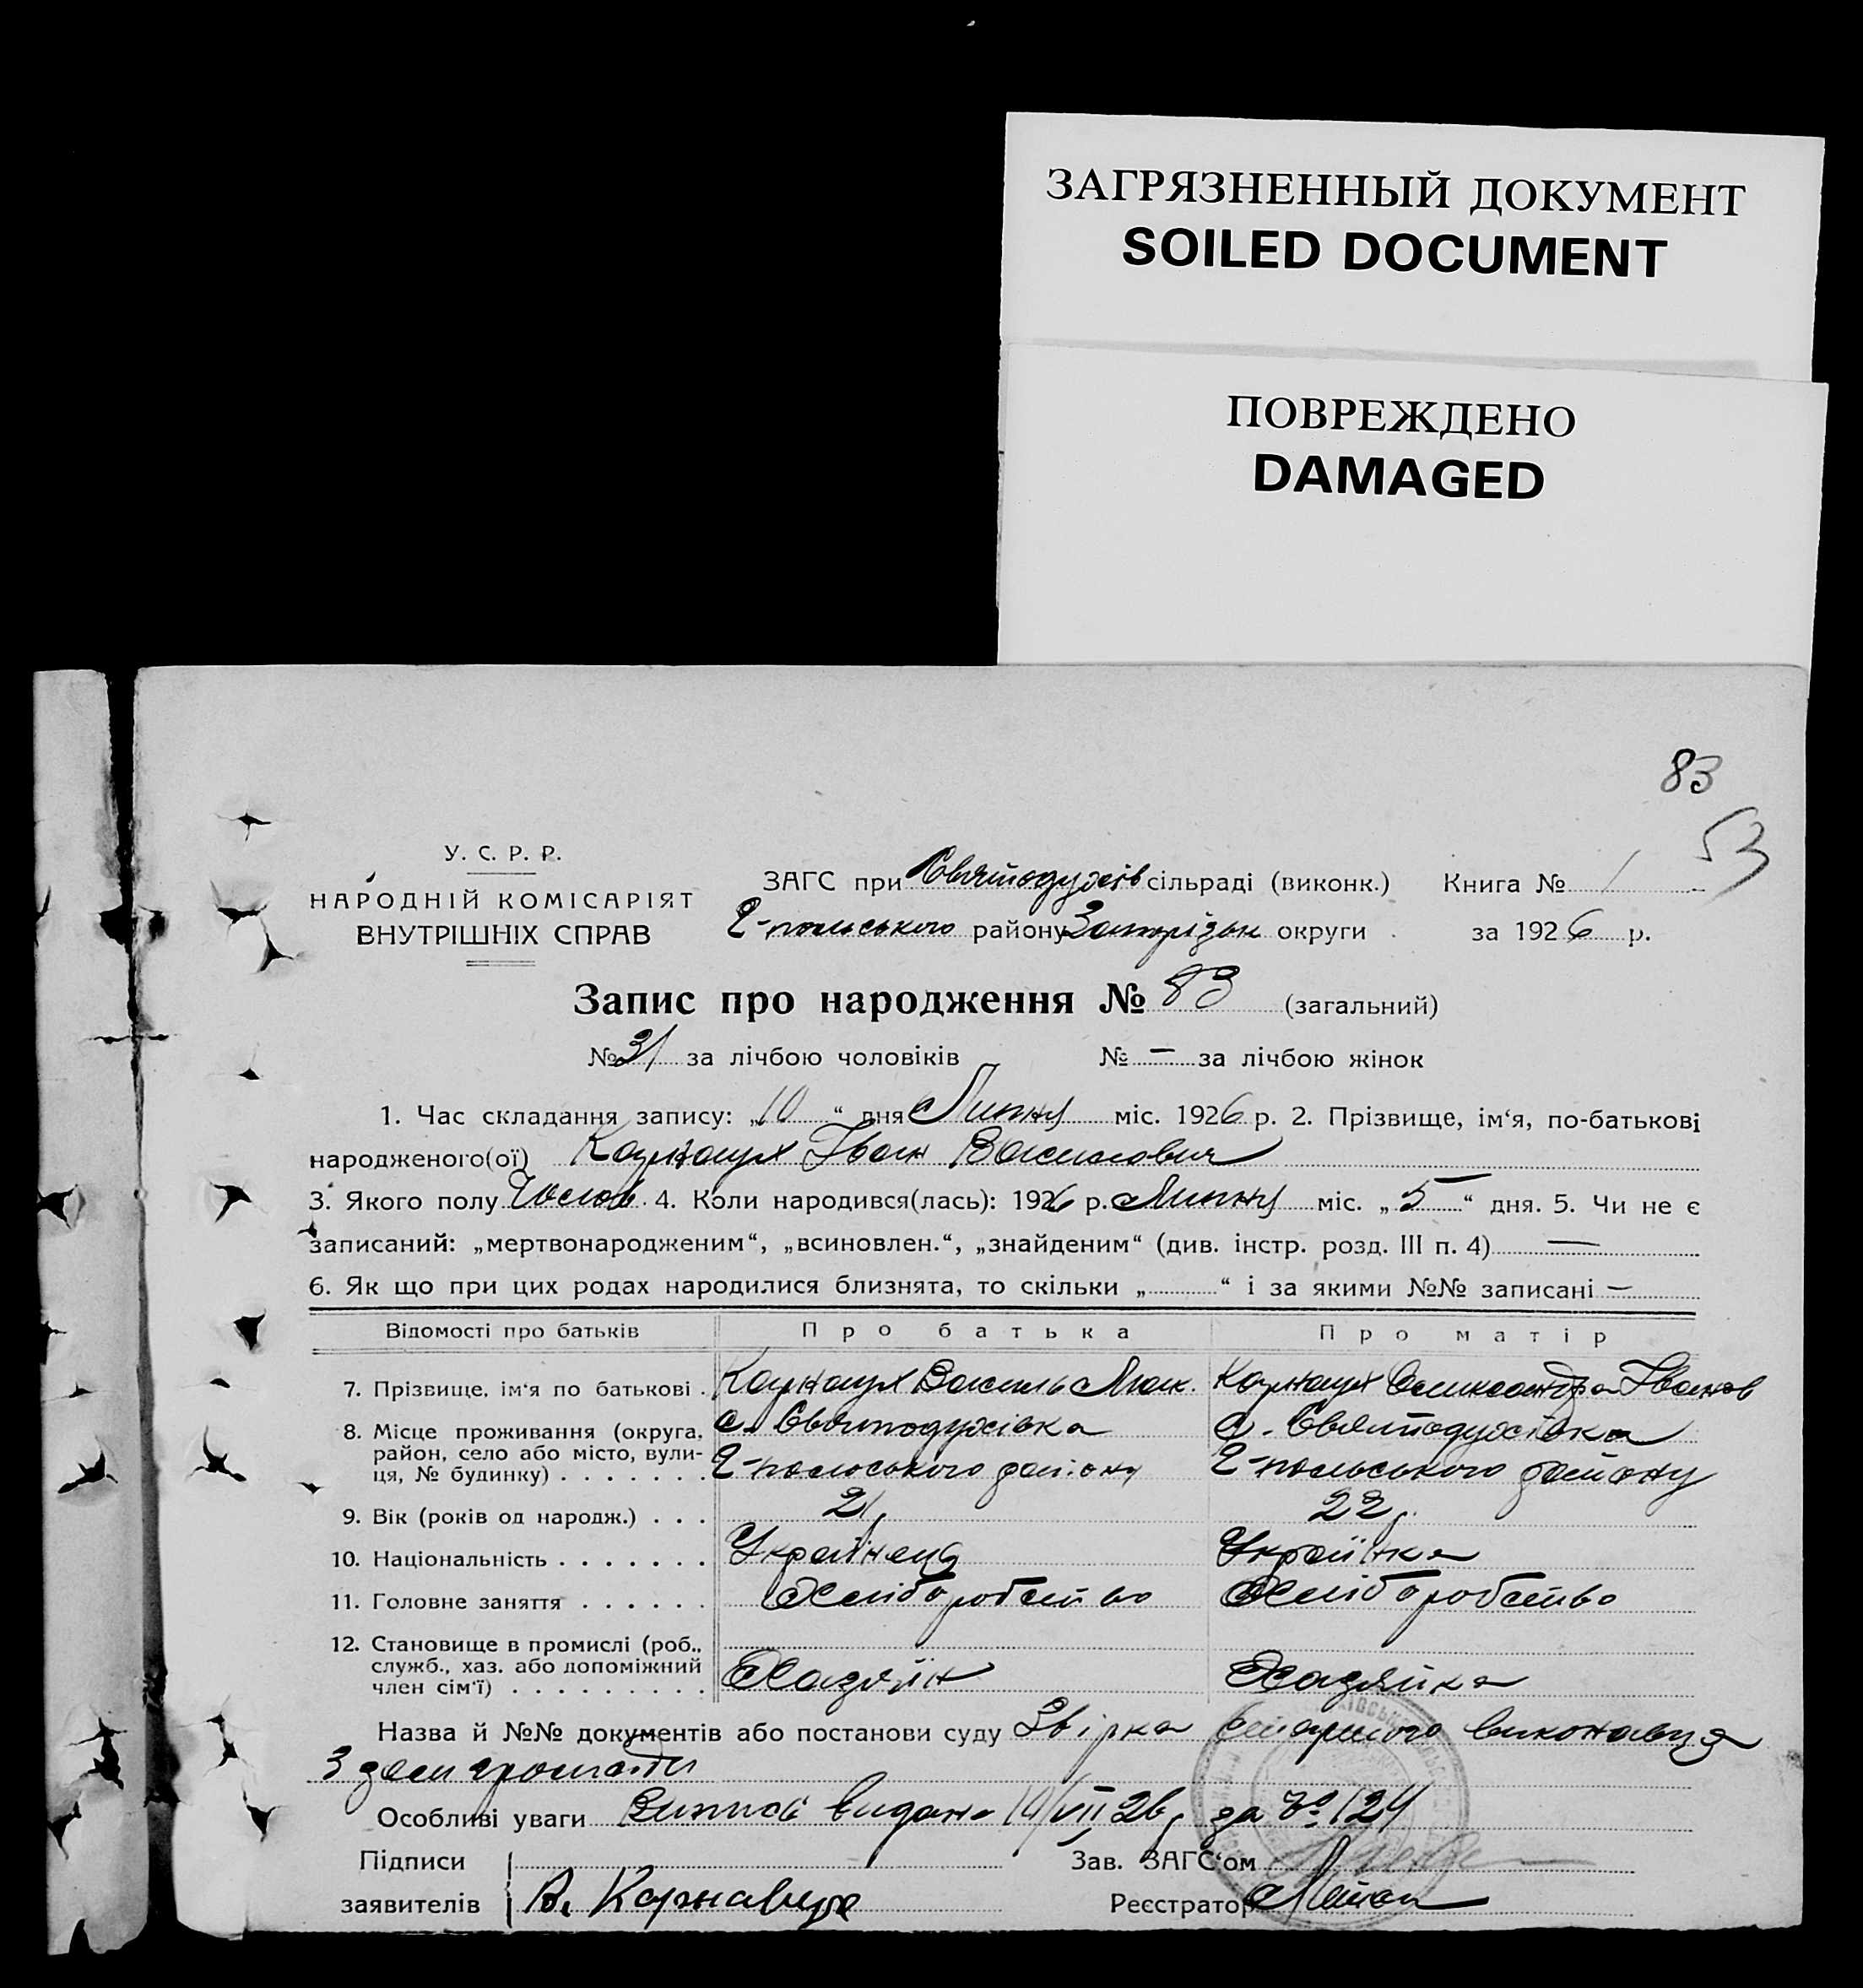 ЗАГРЯЗНЕННЫЙ ДОКУМЕНТ
SOILED DOCUMENT
ПОВРЕЖДЕНО
DAMAGED
83
53
У. С. Р. Р.
НАРОДНІЙ КОМІСАРІЯТ
ВНУТРІШНІХ СПРАВ
ЗАГС при Святодухів сільраді (виконк.) Книга № 1
Г-польського району Запоріжьк округи за 1926 р.
Запис про народження № 83 (загальний)
№ 31 за лічбою чоловіків № — за лічбою жінок
1. Час складання запису: „10“ дня Липня міс. 1926 р. 2. Прізвище, ім‘я, по-батькові
народженого(ої) Карнаух Іван Васильович
3. Якого полу Чолов. 4. Коли народився(лась): 1926 р. Липня міс. „5“ дня. 5. Чи не є
записаний: „мертвонародженим“, „всиновлен.“, „знайденим“ (див. інстр. розд. III п. 4) —
6. Як що при цих родах народилися близнята, то скільки „ “ і за якими №№ записані —
Відомості про батьків Про батька Про матір
7. Прізвище, ім‘я по батькові . Карнаух Василь Мак. Карнаух Олександра Іванов
8. Місце проживання (округа, с. Святодухівка с. Святодухівка
район, село або місто, вули-
ця, № будинку) . . . . . . . Г-польського району Г-польського району
9. Вік (років од народж.) . . . 21 р. 22 р.
10. Національність . . . . . . . Українець Українка
11. Головне заняття . . . . . . Хліборобство Хліборобство
12. Становище в промислі (роб.,
служб., хаз. або допоміжний
член сім‘ї) . . . . . . . . . Хазяїн Хазяйка
Назва й №№ документів або постанови суду Звірка старшого виконавця
З дес
Особливі уваги Випись видана VII 26 р. за № 124
Підписи Зав. ЗАГС‘ом
заявителів В. Карнавух Реєстратор